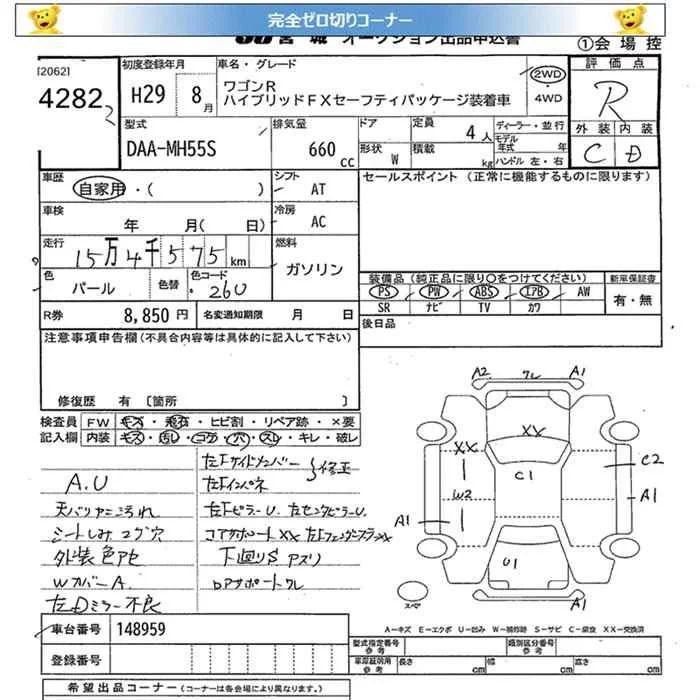 完全ゼロ切りコーナー
JU宮城 オークション出品申込書
①会場控
[2062]
4282
初度登録年月
H29 8月
車名・グレード
ワゴンR
ハイブリッドFXセーフティパッケージ装着車
2WD
・4WD
評価点
R
外装 内装
C D
型式
DAA-MH55S
排気量
660 cc
ドア
形状 W
定員 4人
積載 kg
ディーラー・並行
モデル年式 年
ハンドル 左・右
車歴
自家用・( )
シフト
AT
セールスポイント (正常に機能するものに限ります)
車検
年 月( 日)
冷房
AC
走行
15万4千575km
燃料
ガソリン
色
パール
色替
色コード
26U
装備品 (純正品に限り○をつけてください)
新車保証書
PS PW ABS エアB AW
SR ナビ TV カワ
有・無
R券 8,850円
名変通知期限 月 日
後日品
注意事項申告欄(不具合内容等は具体的に記入して下さい)
修復歴 有 〔箇所 〕
検査員記入欄
FW キズ・飛石・ヒビ割・リペア跡・×要
内装 キズ・汚れ・コゲ・穴・スレ・キレ・破レ
A.U
天バリヤニ汚れ
シートしみ コゲ穴
外装色アセ
WカバーA.
左Dミラー不良
左Fサイドメンバー
左Fインパネ
修正
左FピラーU. 左センタピラーU.
コアサポートXX 左Fフェンダー
下廻りS
ロアサポート
A2 A1
XX XX
C1 C2
W2 A1
A1
U1
A1
スペア
A－キズ E－エクボ U－凹み W－補修跡 S－サビ C－腐食 XX－交換済
車台番号 148959
登録番号
型式指定番号 参考
類別区分番号 参考
車庫証明用 参考 長さ cm 幅 cm 高さ cm
希望出品コーナー (コーナーは各会場により異なります。)